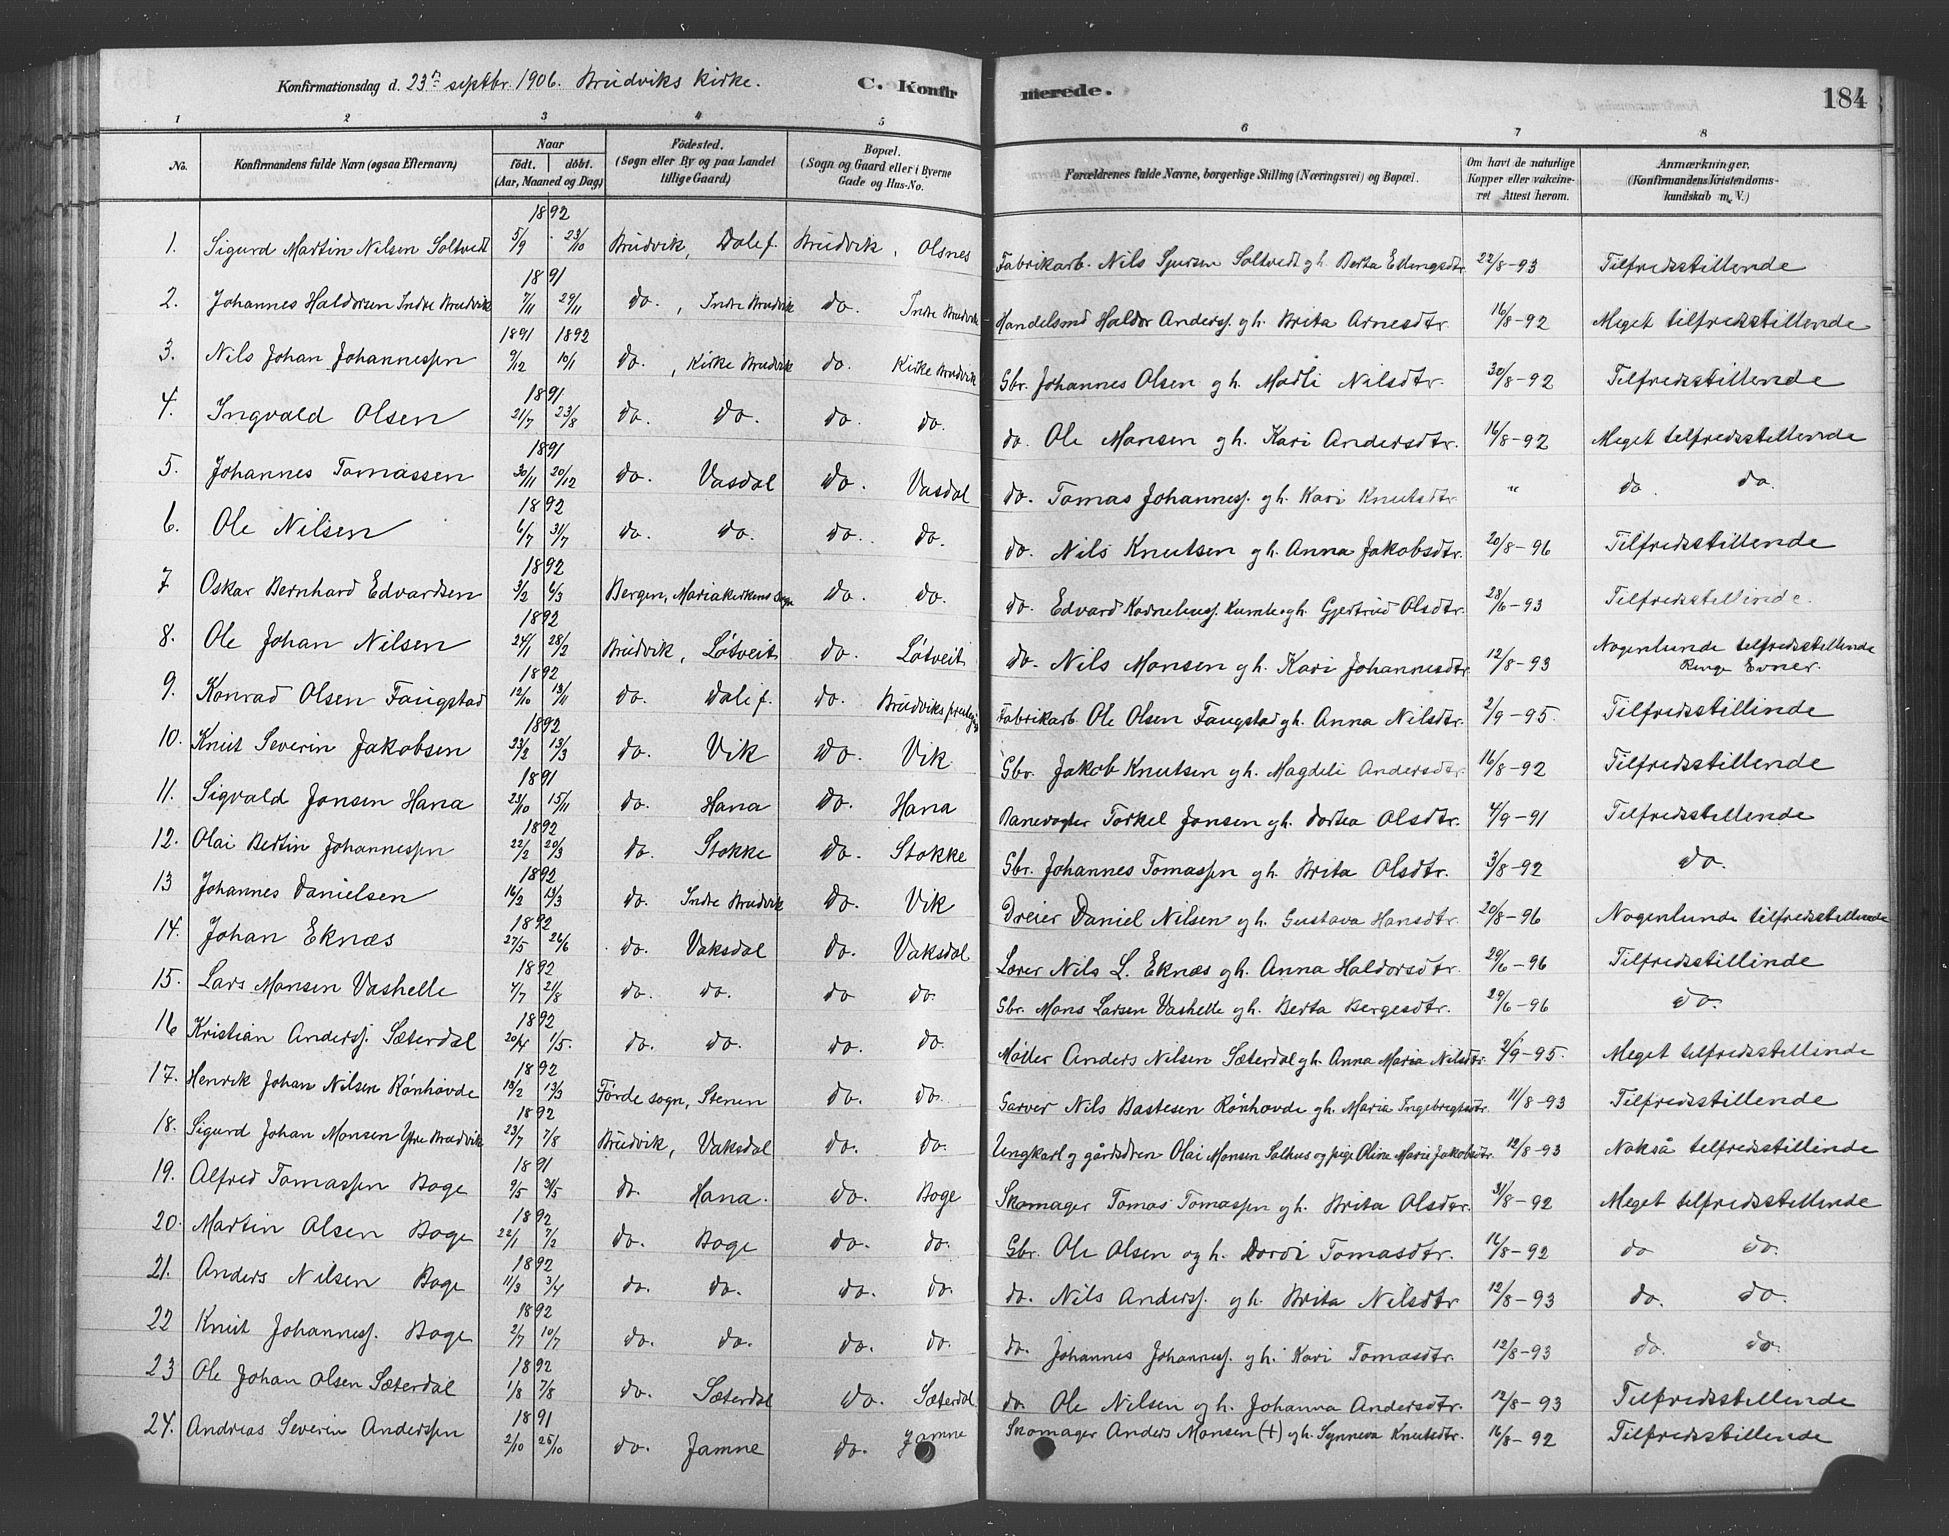 Konfirmationsdag d. 23de septbr. 1906. Brudviks kirke. C. Konfirmerede. 184
1 2 3 4 5 6 7 8
No. Konfirmandens fulde Navn (ogsaa Efternavn) Naar födt. döbt. (Aar, Maaned og Dag) Födested. (Sogn eller By og paa Landet tillige Gaard) Bopæl. (Sogn og Gaard eller i Byerne Gade og Hus-No. Forældrenes fulde Navne, borgerlige Stilling (Næringsvei) og Bopæl. Om havt de naturlige Kopper eller vakcineret. Attest herom. Anmærkninger, (Konfirmandens Kristendomskundskab m. V.)
1. Sigurd Martin Nilsen Soltvedt 1892 5/9 23/10 Brudvik, Dale f. Brudvik, Olsnes Fabrikarb. Nils Sjursen Soltvedt og h. Berta Ellingsdtr. 22/8-93 Tilfredsstillende
2. Johannes Haldorsen Indre Brudvik 1891 7/11 29/11 do., Indre Brudvik do. Indre Brudvik Handelsmd Haldor Anderss. og h. Brita Arnesdtr. 16/8-92 Meget tilfredsstillende
3. Nils Johan Johannessen 1891 1892 9/12 10/1 do., Kirke Brudvik do. Kirke Brudvik Gbr. Johannes Olsen og h. Madli Nilsdtr. 30/8-92 Tilfredsstillende
4. Ingvald Olsen 1891 21/7 23/8 do. do. do. do. do. Ole Monsen og h. Kari Andersdtr. 16/8-92 Meget tilfredsstillende
5. Johannes Tomassen 1891 30/11 20/12 do. Vasdal do. Vasdal do. Tomas Johanness. og h. Kari Knutsdtr " do. do.
6. Ole Nilsen 1892 6/7 31/7 do. do. do. do. do. Nils Knutsen og h. Anna Jakobsdtr. 20/8-96 Tilfredsstillende
7 Oskar Bernhard Edvardsen 1892 3/2 6/3 Bergen, Mariakirkens Sogn do. do. do. Edvard Korneliuss. og h. Gjertrud Olsdtr. 28/6-93 Tilfredsstillende.
8. Ole Johan Nilsen 1892 24/1 28/2 Brudvik, Løtveit do. Løtveit do. Nils Monsen og h. Kari Johannesdtr. 12/8-93 Nogenlunde tilfredsstillende Ringe Evner.
9. Konrad Olsen Faugstad 1892 12/10 13/11 do. Dale f. do. Brudviks prestegj. Fabrikarb. Ole Olsen Faugstad og h. Anna Nilsdtr. 2/9-95. Tilfredsstillende
10. Knut Severin Jakobsen 1892 23/2 13/3 do. Vik do. Vik Gbr. Jakob Knutsen og h. Magdeli Andersdtr. 16/8-92 Tilfredsstillende
11. Sigvald Jonsen Hana 1891 23/10 15/11 do. Hana do. Hana Banevogter Torkel Jonsen og h. Dortea Olsdtr. 4/9-91 Tilfredsstillende
12. Olai Bertin Johannessen 1892 22/2 20/3 do. Stokke do. Stokke Gbr. Johannes Tomassen og h. Brita Olsdtr. 3/8-92 do.
13 Johannes Danielsen 1892 16/2 13/3 do. Indre Brudvik do. Vik Dreier Daniel Nilsen og h. Gustava Hansdtr. 20/8-96 Nogenlunde tilfredsstillende
14. Johan Eknæs 1892 27/5 26/6 do. Vaksdal do. Vaksdal Lærer Nils L. Eknæs og h. Anna Haldorsdtr. 29/6-96 Tilfredsstillende
15. Lars Monsen Vashelle 1892 4/7 21/8 do. do. do do. Gbr. Mons Larsen Vashelle og h. Berta Bergesdtr. 29/6-96 do.
16 Kristian Anderss. Sæterdal 1892 20/4 1/5. do. do. do. do. Møller Anders Nilsen Sæterdal og h. Anna Maria Nilsdtr. 2/9-95. Meget tilfredsstillende
17. Henrik Johan Nilsen Rønhovde 1892 13/2 13/3 Førde sogn, Stenen do. do. Garver Nils Bastesen Rønhovde og h. Maria Ingebregtsdtr. 11/8-93 Tilfredsstillende
18. Sigurd Johan Monsen Ytre Brudvik 1892 23/7 7/8 Brudvik, Vaksdal do. do. Ungkarl og gårddren Olai Monsen Salhus og pige Oline Marie Jakobsdtr. 12/8-93 Nokså tilfredsstillende
19. Alfred Tomassen Boge 1891 9/5 31/5 do. Hana. do. Boge Skomager Tomas Tomassen og h. Brita Olsdtr. 31/8-92 Meget tilfredsstillende
20. Martin Olsen Boge 1892 22/1 7/2 do. Boge do. do. Gbr. Ole Olsen og h. Dordi Tomasdtr. 16/8-92 do do.
21. Anders Nilsen Boge 1892 11/3 3/4 do. do. do. do. do. Nils Anderss. og h. Brita Nilsdtr 12/8-93 do. do.
22 Knut Johanness. Boge 1892 2/7 10/7 do. do. do. do. do. Johannes Johanness. og h. Kari Tomasdtr. 12/8-93 do. do.
23 Ole Johan Olsen Sæterdal 1892 1/8 7/8 do. Sæterdal do. Sæterdal do. Ole Nilsen og h. Johanna Andersdtr. 12/8-93 Tilfredsstillende
24. Andreas Severin Anderssen 1891 2/10 25/10 do. Jamne do. Jamne Skomager Anders Monsen (+) og h. Synneva Knutsdtr. 16/8-92 Tilfredsstillende